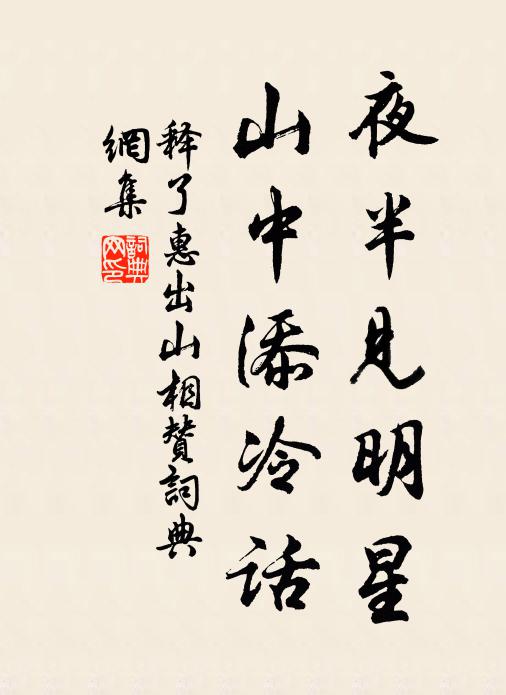 夜半见明星
山中添冷话
释了惠出山相赞詞典
網集
詞典网印